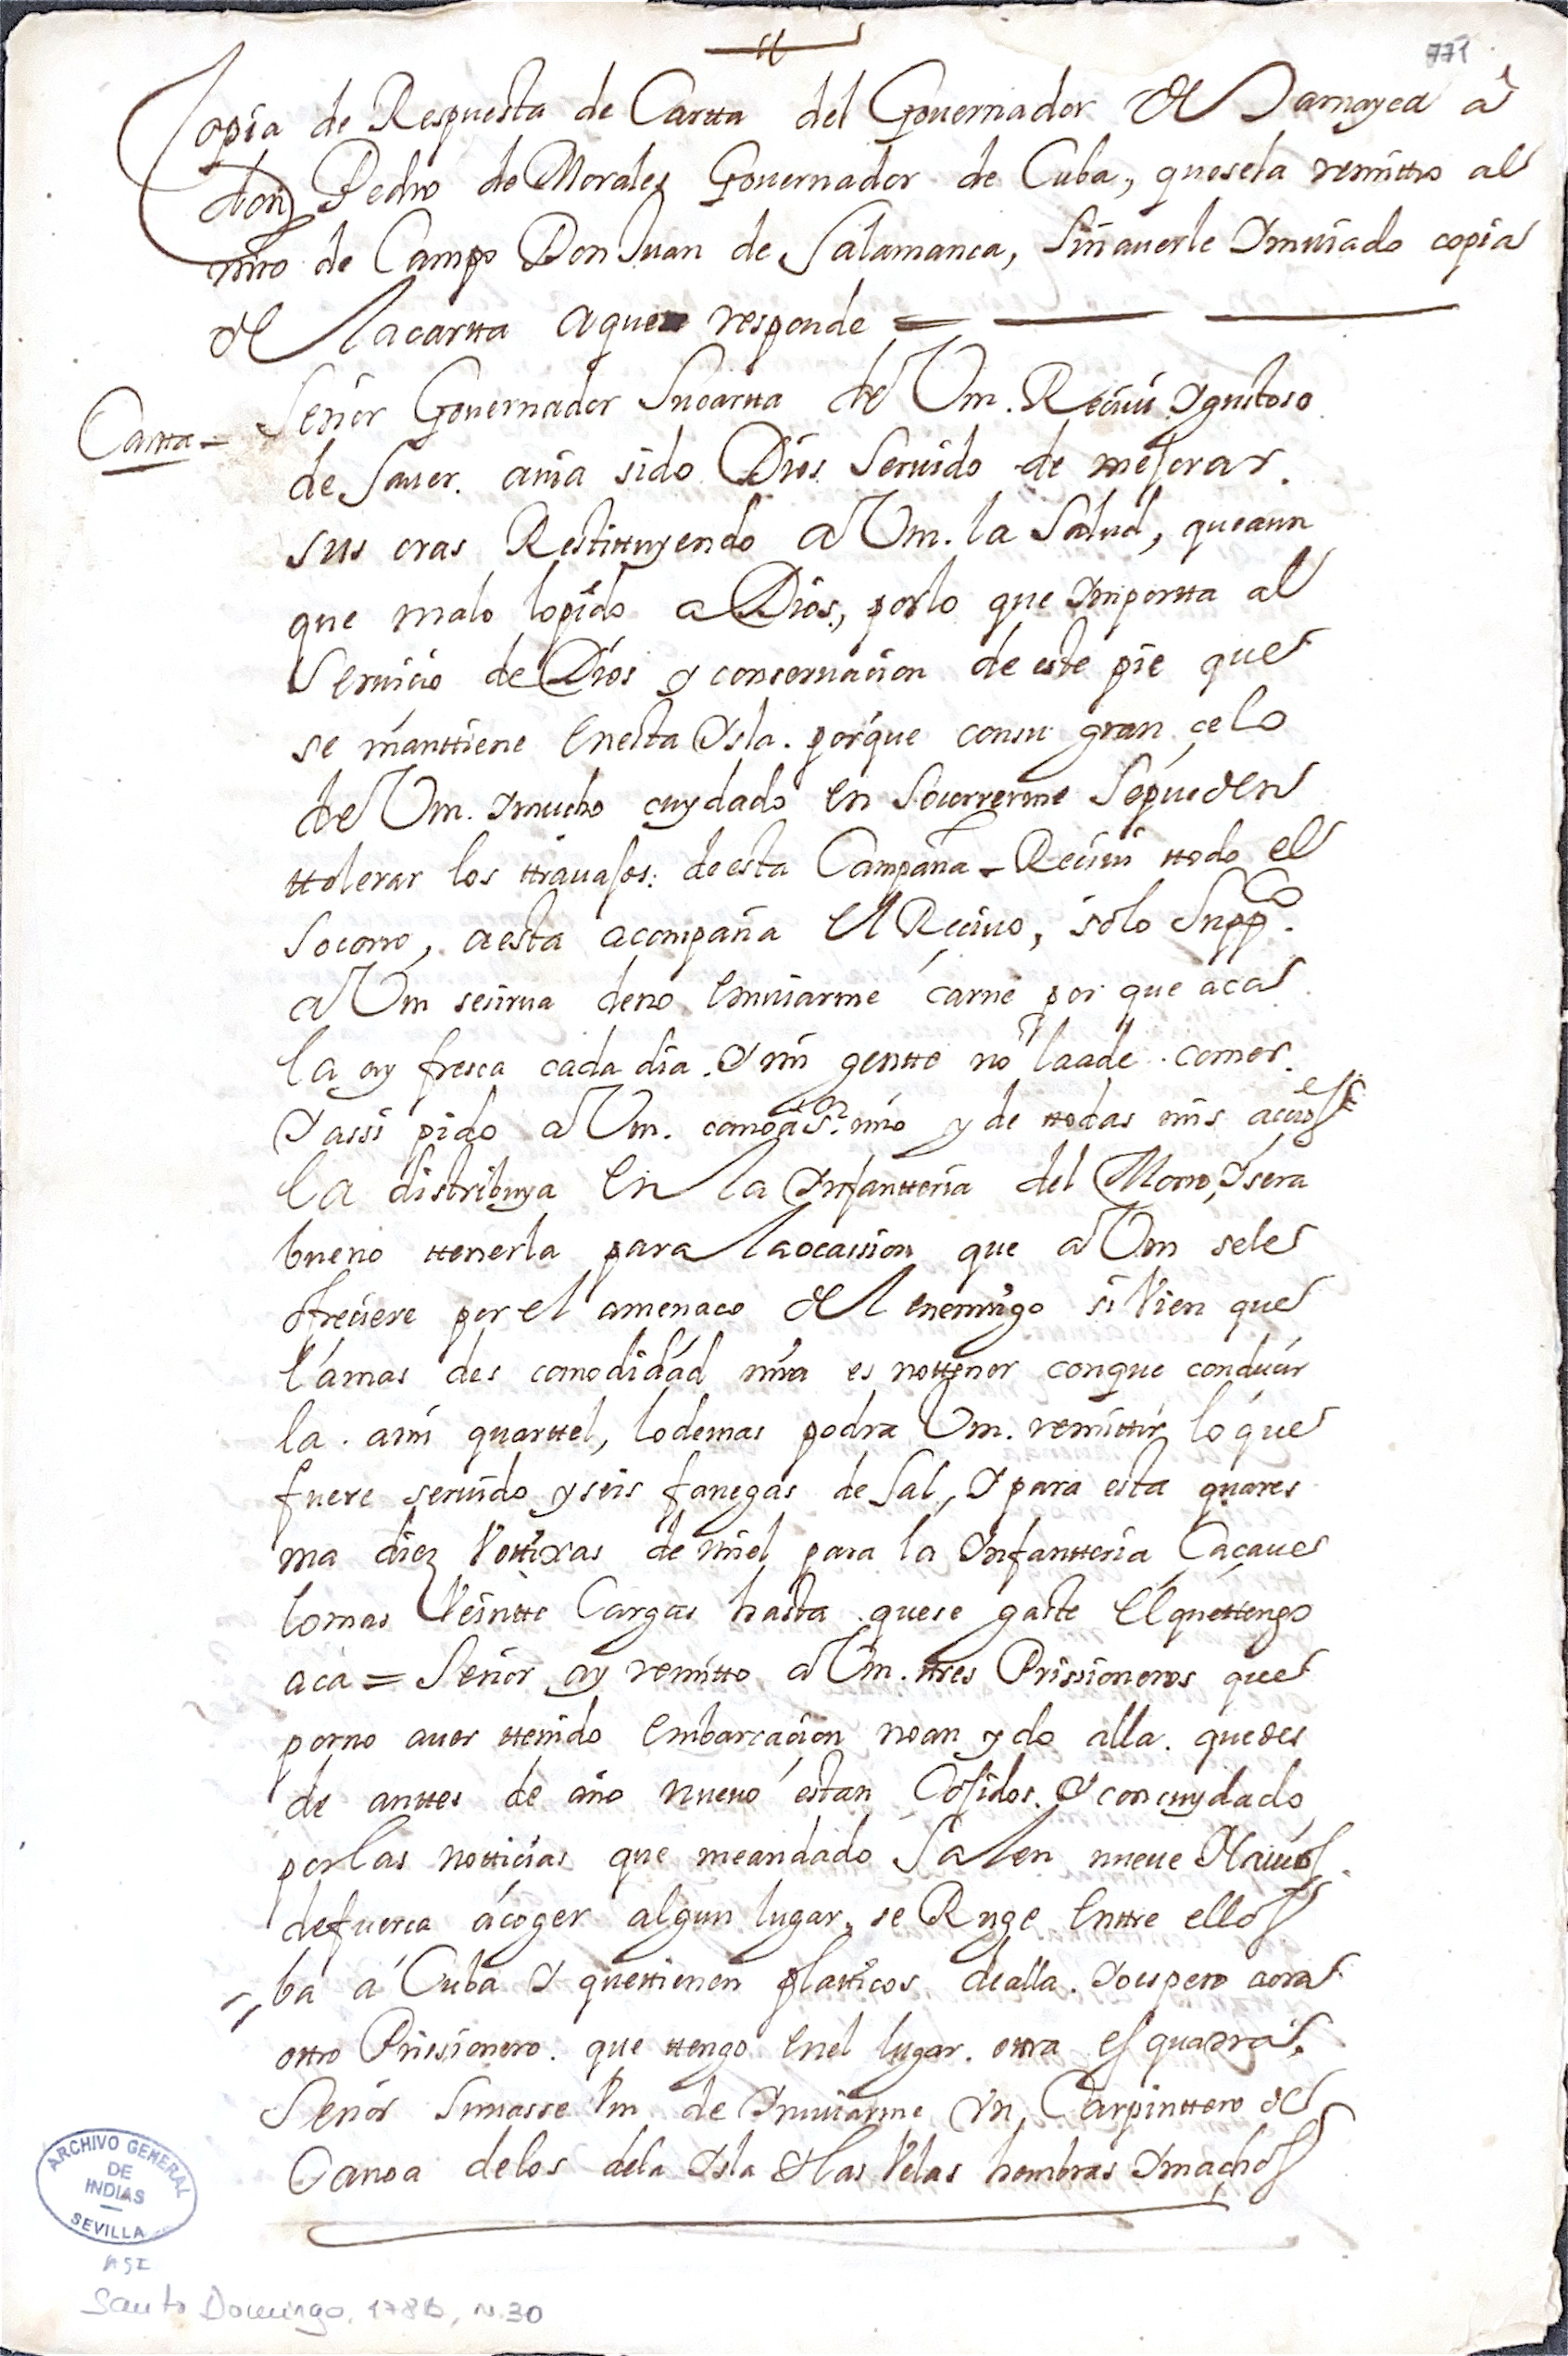 771
Copia de Respuesta de Cartta del Gouernador de Jamayca â
don Pedro de Morales Gouernador de Cuba, quesela remitto al
mro de Campo Don Juan de Salamanca, sinauerle Imuiado copia
de lacartta aque responde =
Cartta = Señor Gouernador Sucartta de Vm. Reciui Igustoso
de Sauer. auia sido Dios Seruido de mejorar.
sus oras Restittuyendo a Vm. la Salud, queaun
que malo lopido a Dios, porlo que Importta al
Seruicio de Dios y conseruacion de este pie que
se manttiene enesta Isla. porque consu gran çelo
de Vm. Imucho cuydado en Socorrerme Sepueden
ttolerar los ttrauajos. deesta Campaña - Reciui ttodo el
Socorro, aesta acompaña el Reciuo, solo Suppco.
a Vm sesirua deno emuiarme carne por que aca
la ay fresca cada dia. I mi gentte no laade comer.
I assi pido a Vm. comoa Sor. mio y de ttodas mis acciones
la distribuya en la Infantteria del Morro, Isera
bueno ttenerla para laocassion que a Vm sele
ofreciere por el amenaco del enemigo si Vien que
lamas des comodidad mia es nottener conque conducir
la. ami quarttel, lodemas podra Vm. remittir loque
fuere seruido yseis fanegas de Sal, I para esta quares
ma diez Vottixas de miel para la Infantteria Caçaue
lomas Veintte Cargas hasta quese gaste elquettengo
aca = Señor ay remitto a Vm. ttres Prissioneros que
porno auer ttenido embarcacion noan ydo alla. quedes
de anttes de año nueuo estan Cojidos. I concuydado
porlas notticias que meandado Salen nueue Nauios
defuerca acoger algun lugar, se Ruge enttre ellos
ba a Cuba I quettienen platticos dealla. Ioespero aora
ottro Prissionero. que ttengo enel lugar. ottra esquadra.
Señor Siruasse Vm de Imuiarme Vn Carpinttero de
Canoa delos dela Isla Ilas Velas hembras Imachos
ARCHIVO GENERAL
DE
INDIAS
SEVILLA
AGI
Santo Domingo, 178B, N.30